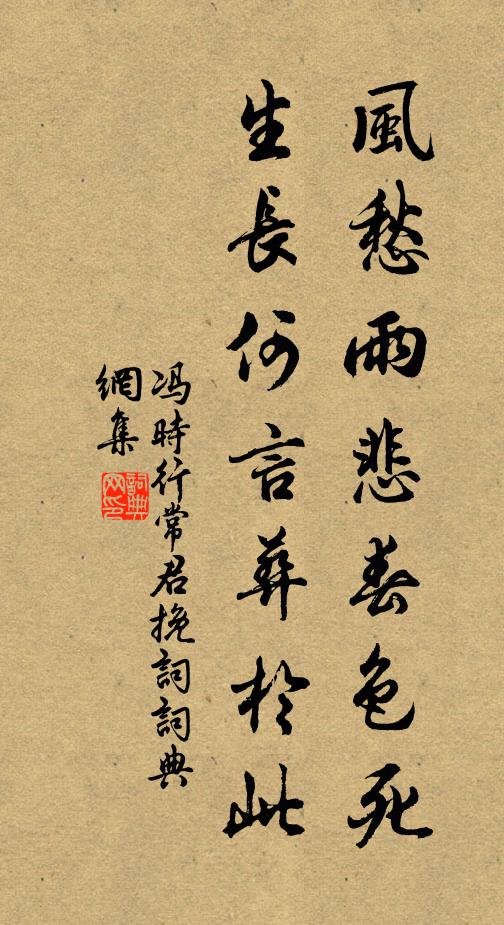 風愁雨悲春色死
生長何言葬於此
冯時行常君挽詞詞典
網集
詞典
网印